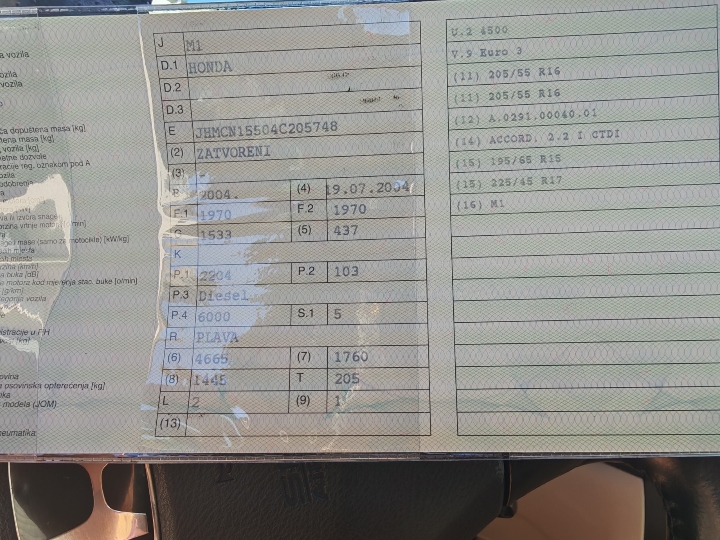 a vozila
vozila
vozila
ča dopuštena masa [kg]
tena masa [kg]
vozila [kg]
etne dozvole
racije reg. oznakom pod A
ozila
odobrenja
J M1
D.1 HONDA
D.2
D.3
E JHMCN15504C205748
(2) ZATVORENI
(3) -
B 2004. (4) 19.07.2004
F.1 1970 F.2 1970
G 1533 (5) 437
K
P.1 2204 P.2 103
P.3 Diesel
P.4 6000 S.1 5
R PLAVA
(6) 4665 (7) 1760
(8) 1445 T 205
L 2 (9) 1
(13)
U.2 4500
V.9 Euro 3
(11) 205/55 R16
(11) 205/55 R16
(12) A.0291.00040.01
(14) ACCORD. 2.2 I CTDI
(15) 195/65 R15
(15) 225/45 R17
(16) M1
mase (samo za motocikle) [kW/kg]
buka [dB]
motora kod mjerenja stac. buke [o/min]
[g/km]
vozila
istracije u RH
ovina
a osovinska opterećenja [kg]
modela (JOM)
neumatika